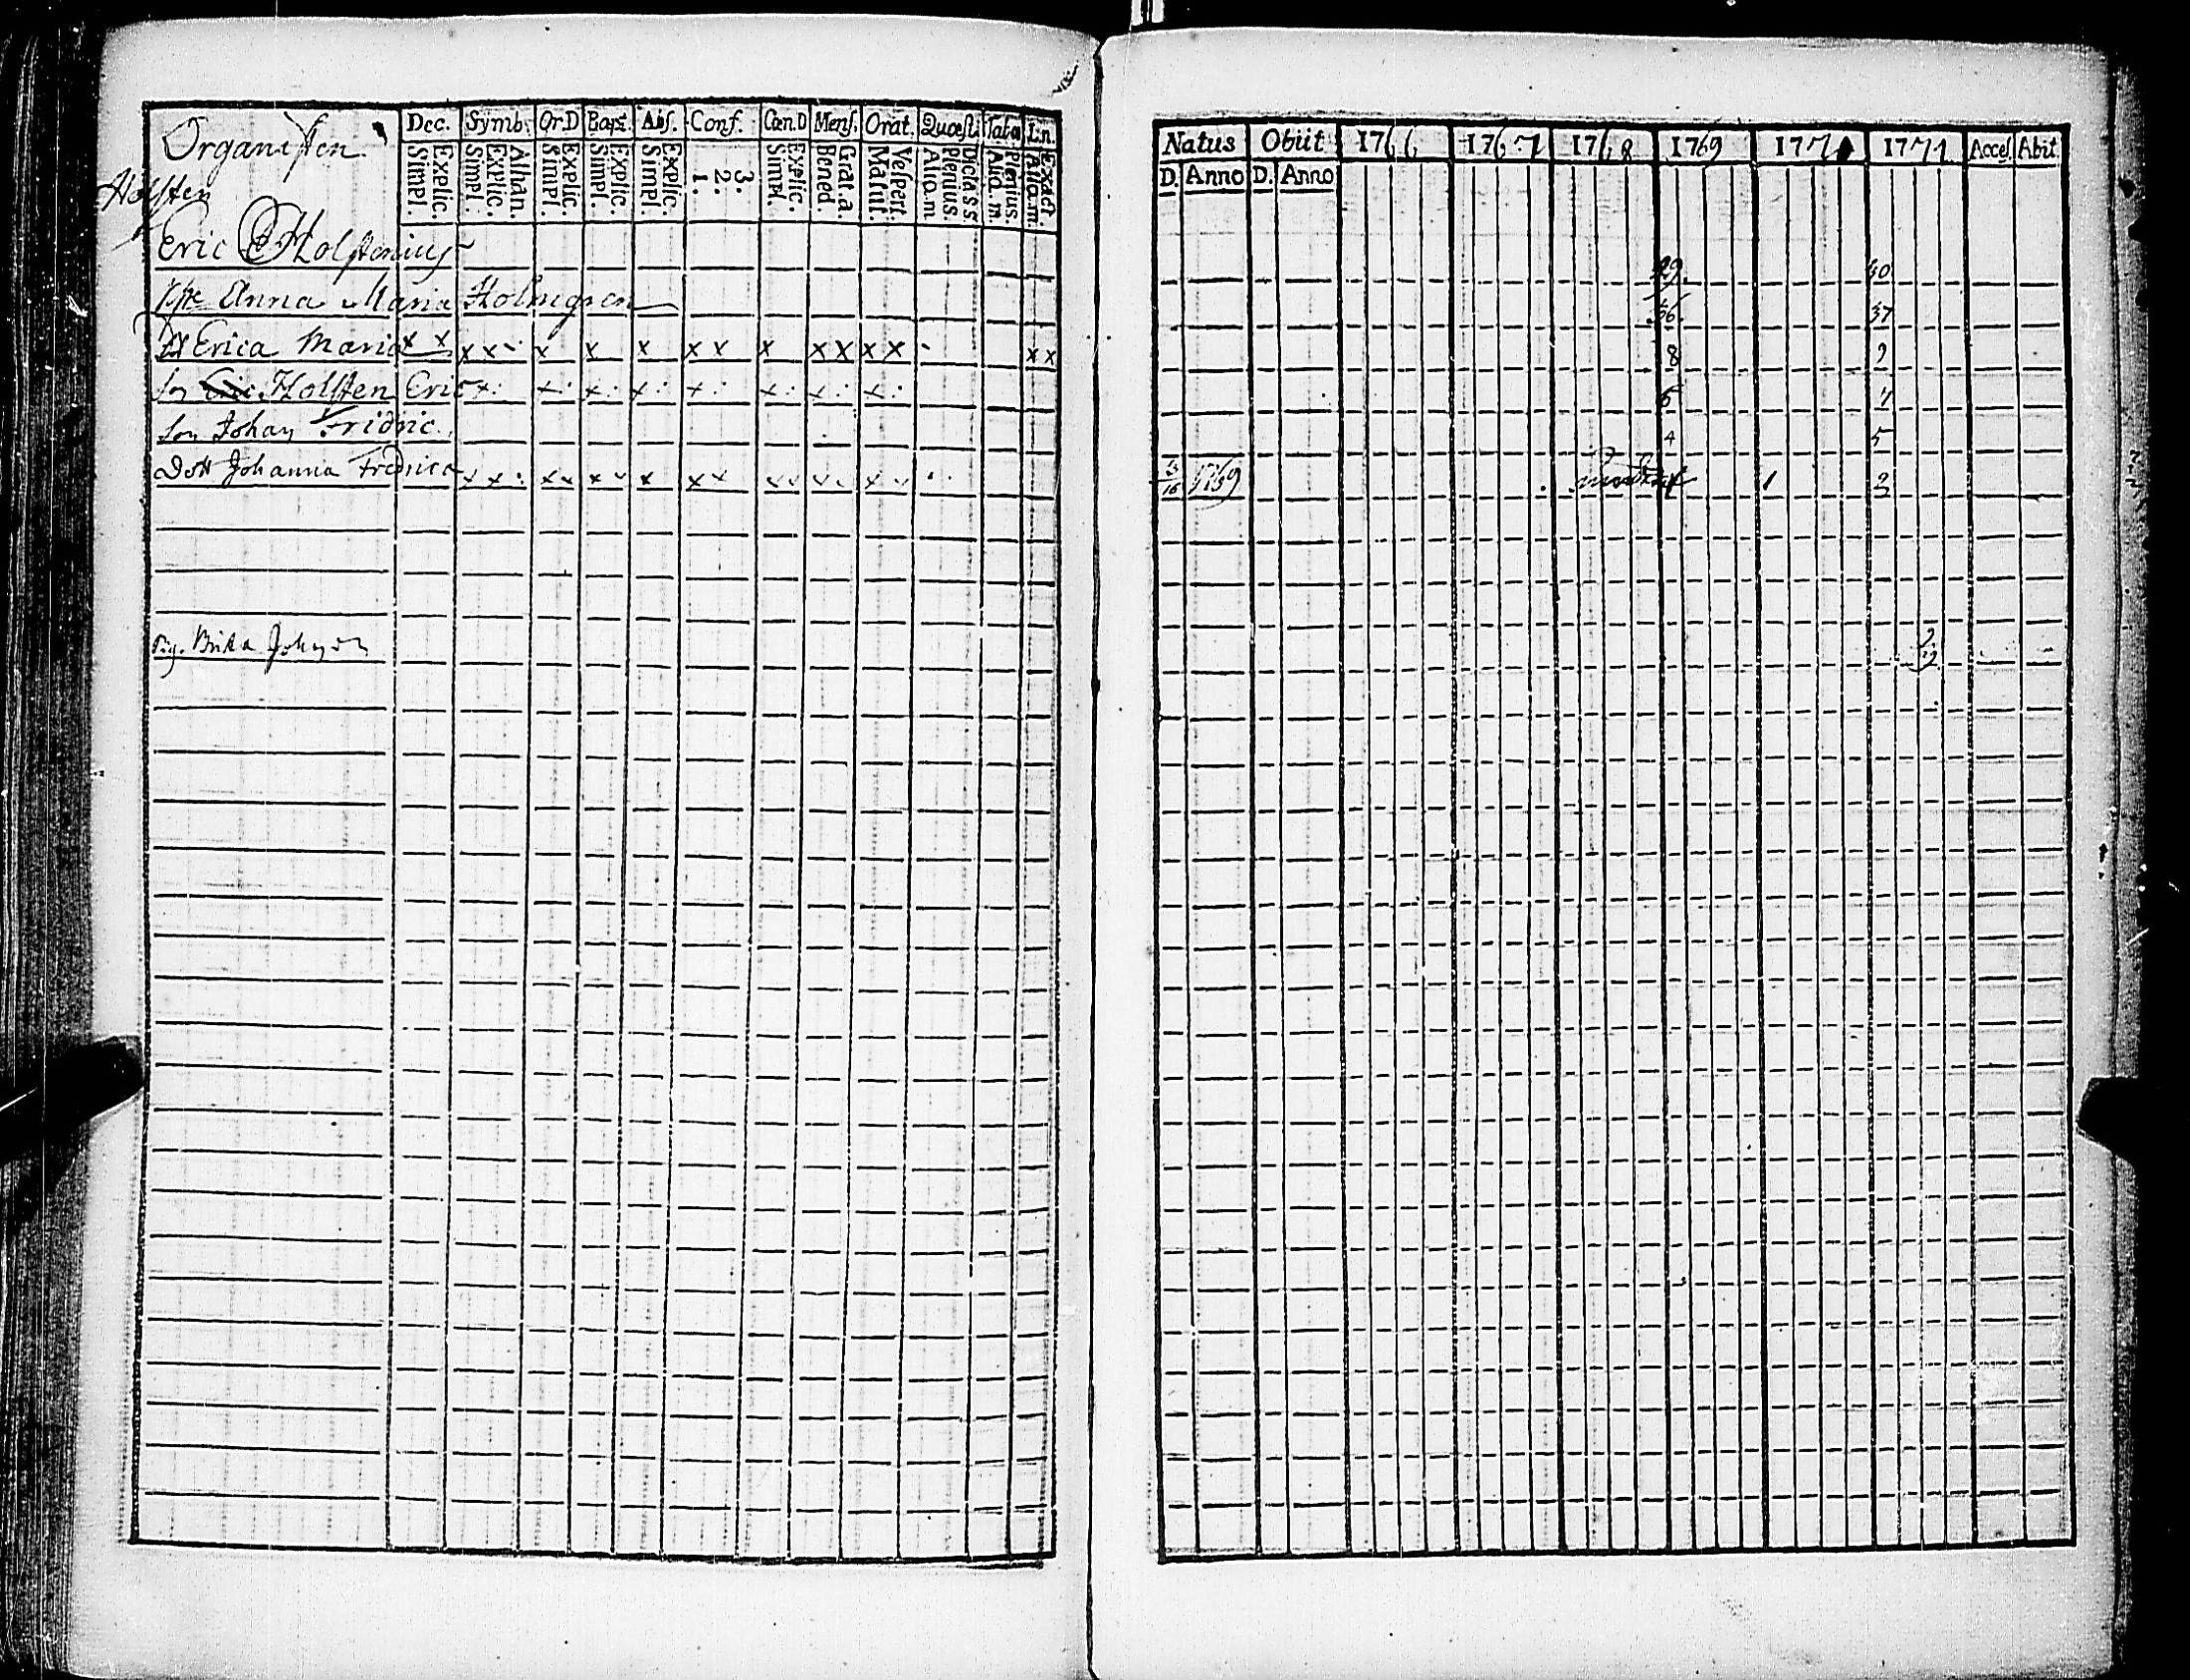 Organisten
Dec. Symb. Or.D Bapt. Abs. Conf. Cœn.D Mens. Orat. Quæst. Taba Lin.
Simpl. Explic. Simpl. Explic. Athan. Simpl. Explic. Simpl. Explic. Simpl. Explic. 1. 2. 3. Simpl Explic. Bened. Grat.a. Matut. Vespert. Aliq.m Plenius Dicta s s. Aliq.m. Plenius. Aliq.m. Exact.
Holsten
Eric Holstenius
Anna Maria Holmgren
Erica Maria x x x x x x x x x x x x x x x x x
Son Eric Holsten Eric x x x x x x x x
Son Johan Fridric
Dott Johanna Fredrica x x x x x x x x x x
Pig. Brita
Natus Obiit 1766 1767 1768 1769 1770 1771 Acces. Abit
D. Anno D. Anno
39 40
36 37
8 9
5 7
4 5
1769 1 2